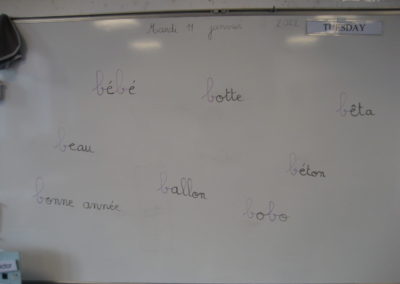 Mardi 11 janvier 2022 TUESDAY
bébé
botte
bêta
beau
béton
ballon
bonne année
bobo